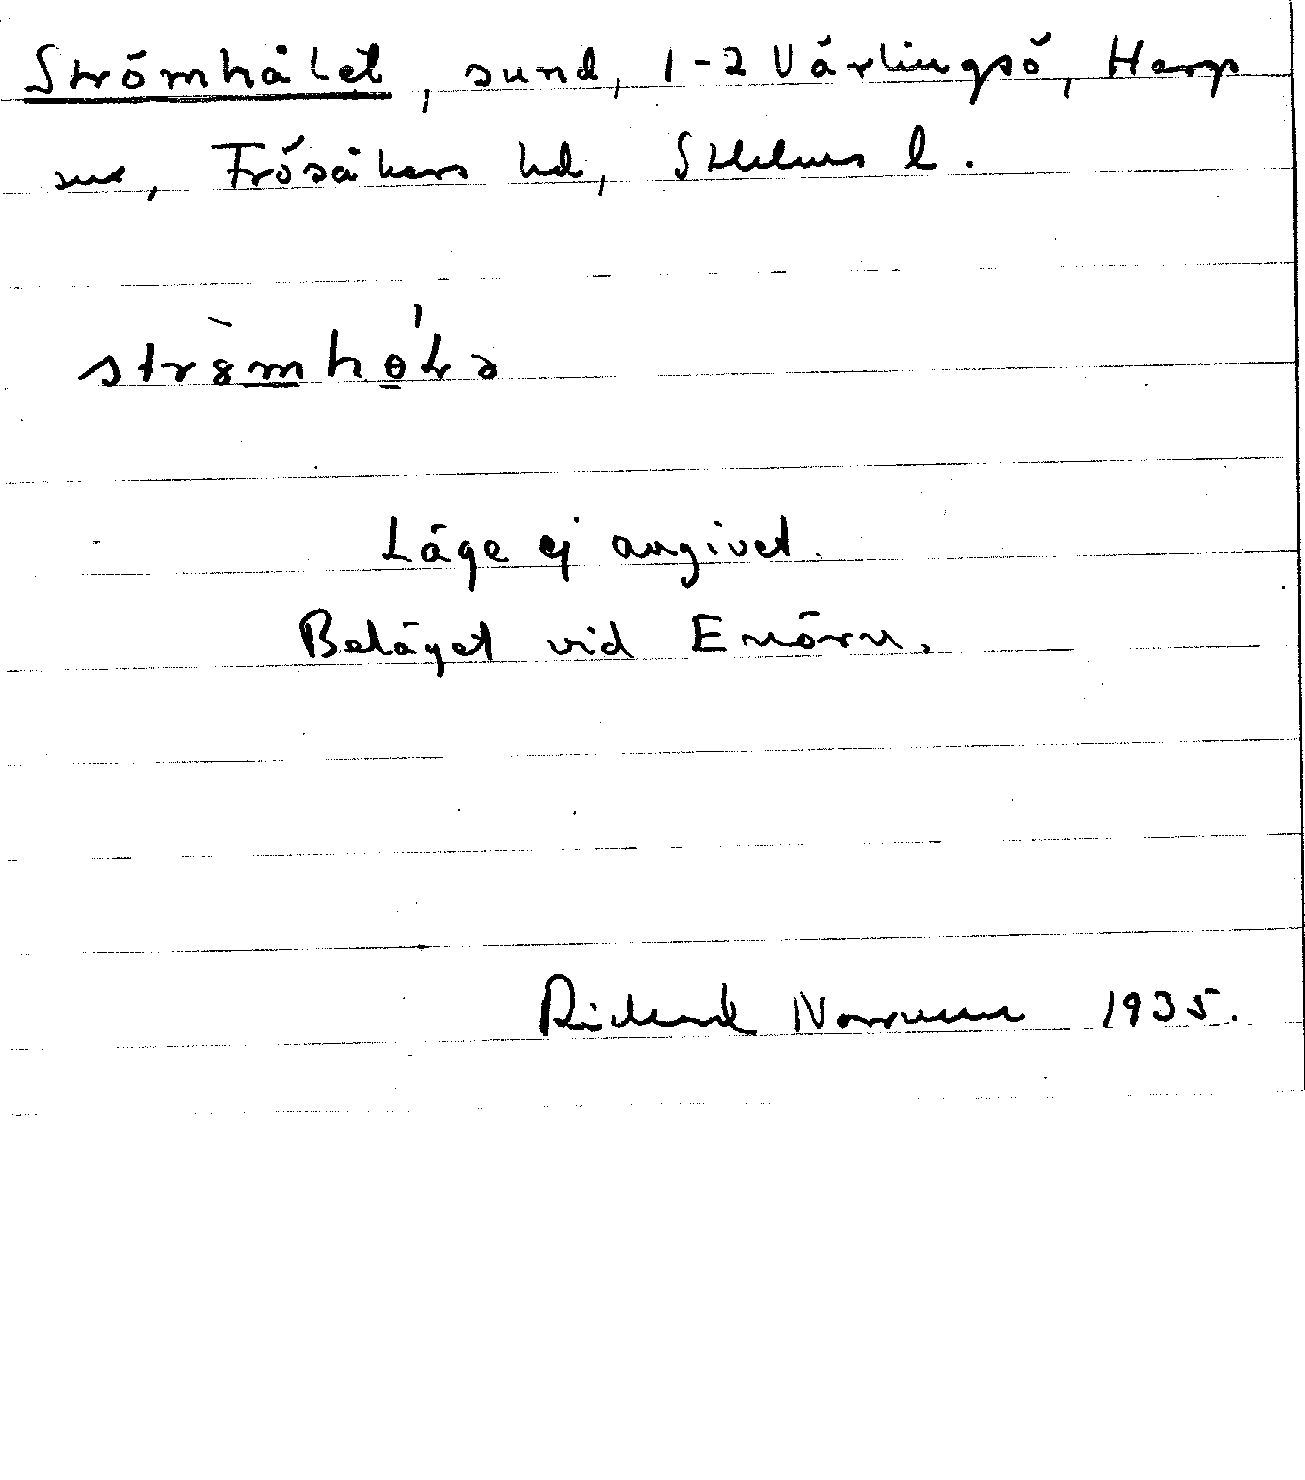 Strömhålet, sund, 1-2 Värlingsö, Hargs
sn, Frösåkers hd, Sthlms l.
strömhòlə
Läge ej angivet.
Beläget vid Enörn.
Richard Norrman 1935.